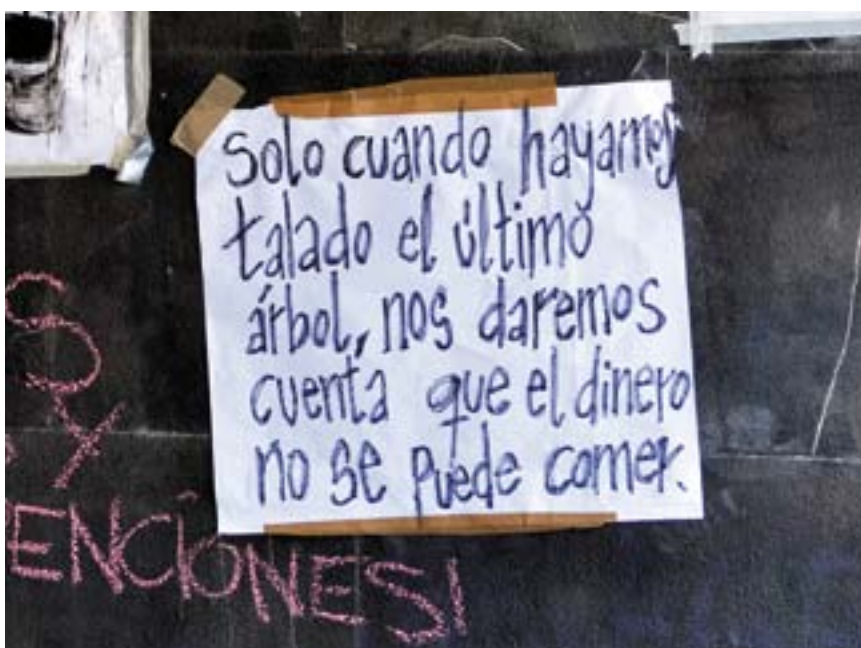 Solo cuando hayamos
talado el último
árbol, nos daremos
cuenta que el dinero
no se puede comer.
S
Y
ENCÍONES!